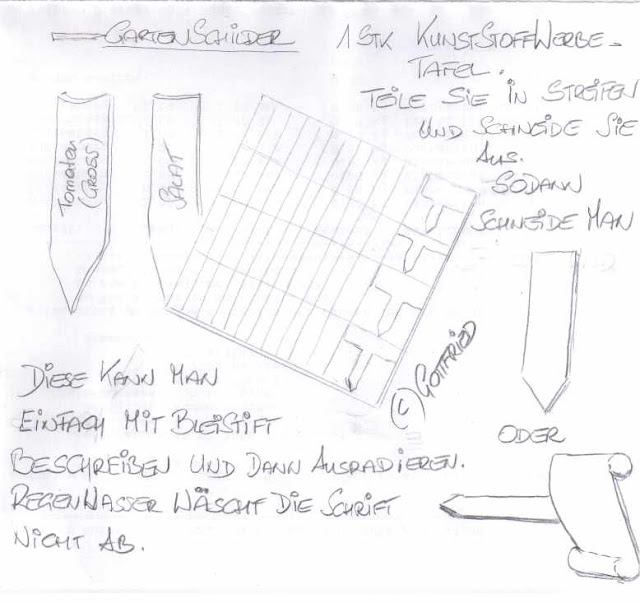 GARTENSCHILDER
1 STK KUNSTSTOFFWERBE-
TAFEL.
TEILE SIE IN STREIFEN
UND SCHNEIDE SIE
AUS.
SODANN
SCHNEIDE MAN
Tomaten
(GROSS)
SALAT
(C) GOTTFRIED
ODER
DIESE KANN MAN
EINFACH MIT BLEISTIFT
BESCHREIBEN UND DANN AUSRADIEREN.
REGENWASSER WÄSCHT DIE SCHRIFT
NICHT AB.